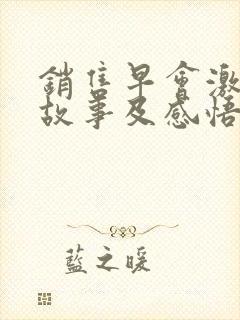 銷售早會激
故事及感悟
藍之暖